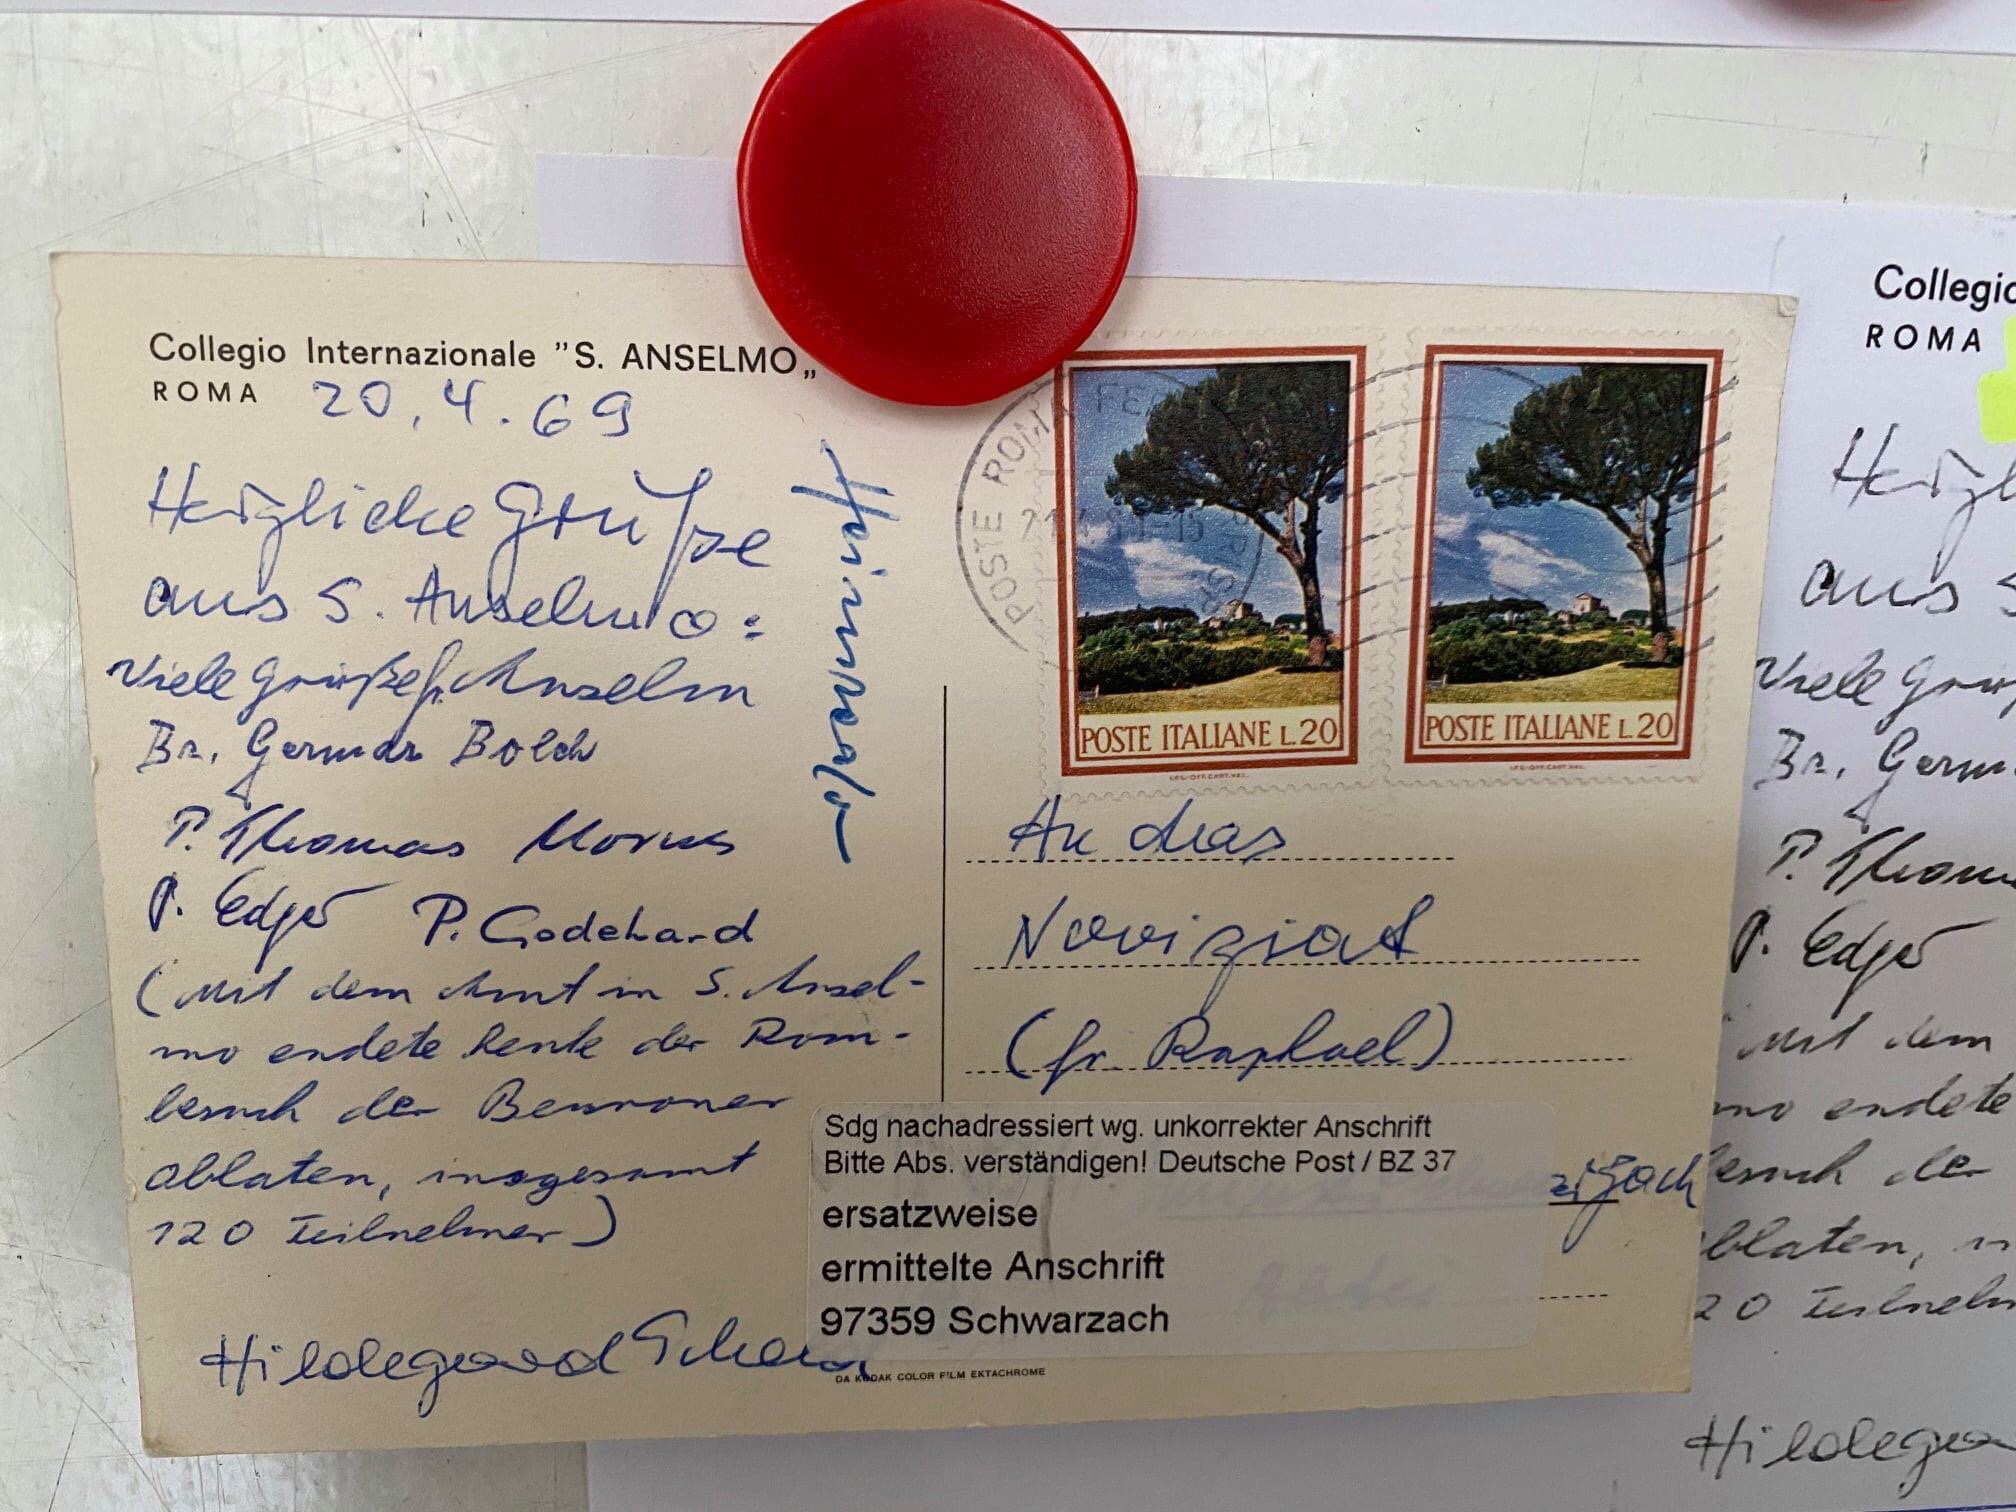 Collegio Internazionale "S. ANSELMO„
ROMA 20.4.69
Herzliche Grüße
aus S. Anselmo:
Viele Grüße fr. Anselm
Br. Germar Bolch
P. Thomas Morus
P. Edgar P. Godehard
(Mit dem Amt in S. Ansel-
mo endete heute der Rom-
besuch der Beuroner
Oblaten, insgesamt
120 Teilnehmer)
Hildegard
POSTE ROMA
POSTE ITALIANE L.20
POSTE ITALIANE L.20
An das
Noviziat
(fr. Raphael)
Sdg nachadressiert wg. unkorrekter Anschrift
Bitte Abs. verständigen! Deutsche Post / BZ 37
ersatzweise
ermittelte Anschrift
97359 Schwarzach
Abtei
DA KODAK COLOR FILM EKTACHROME
Collegio
ROMA
aus S
Viele
Br. Germ
P. Thom
P. Edgar
Mit dem
mo endete
besuch der